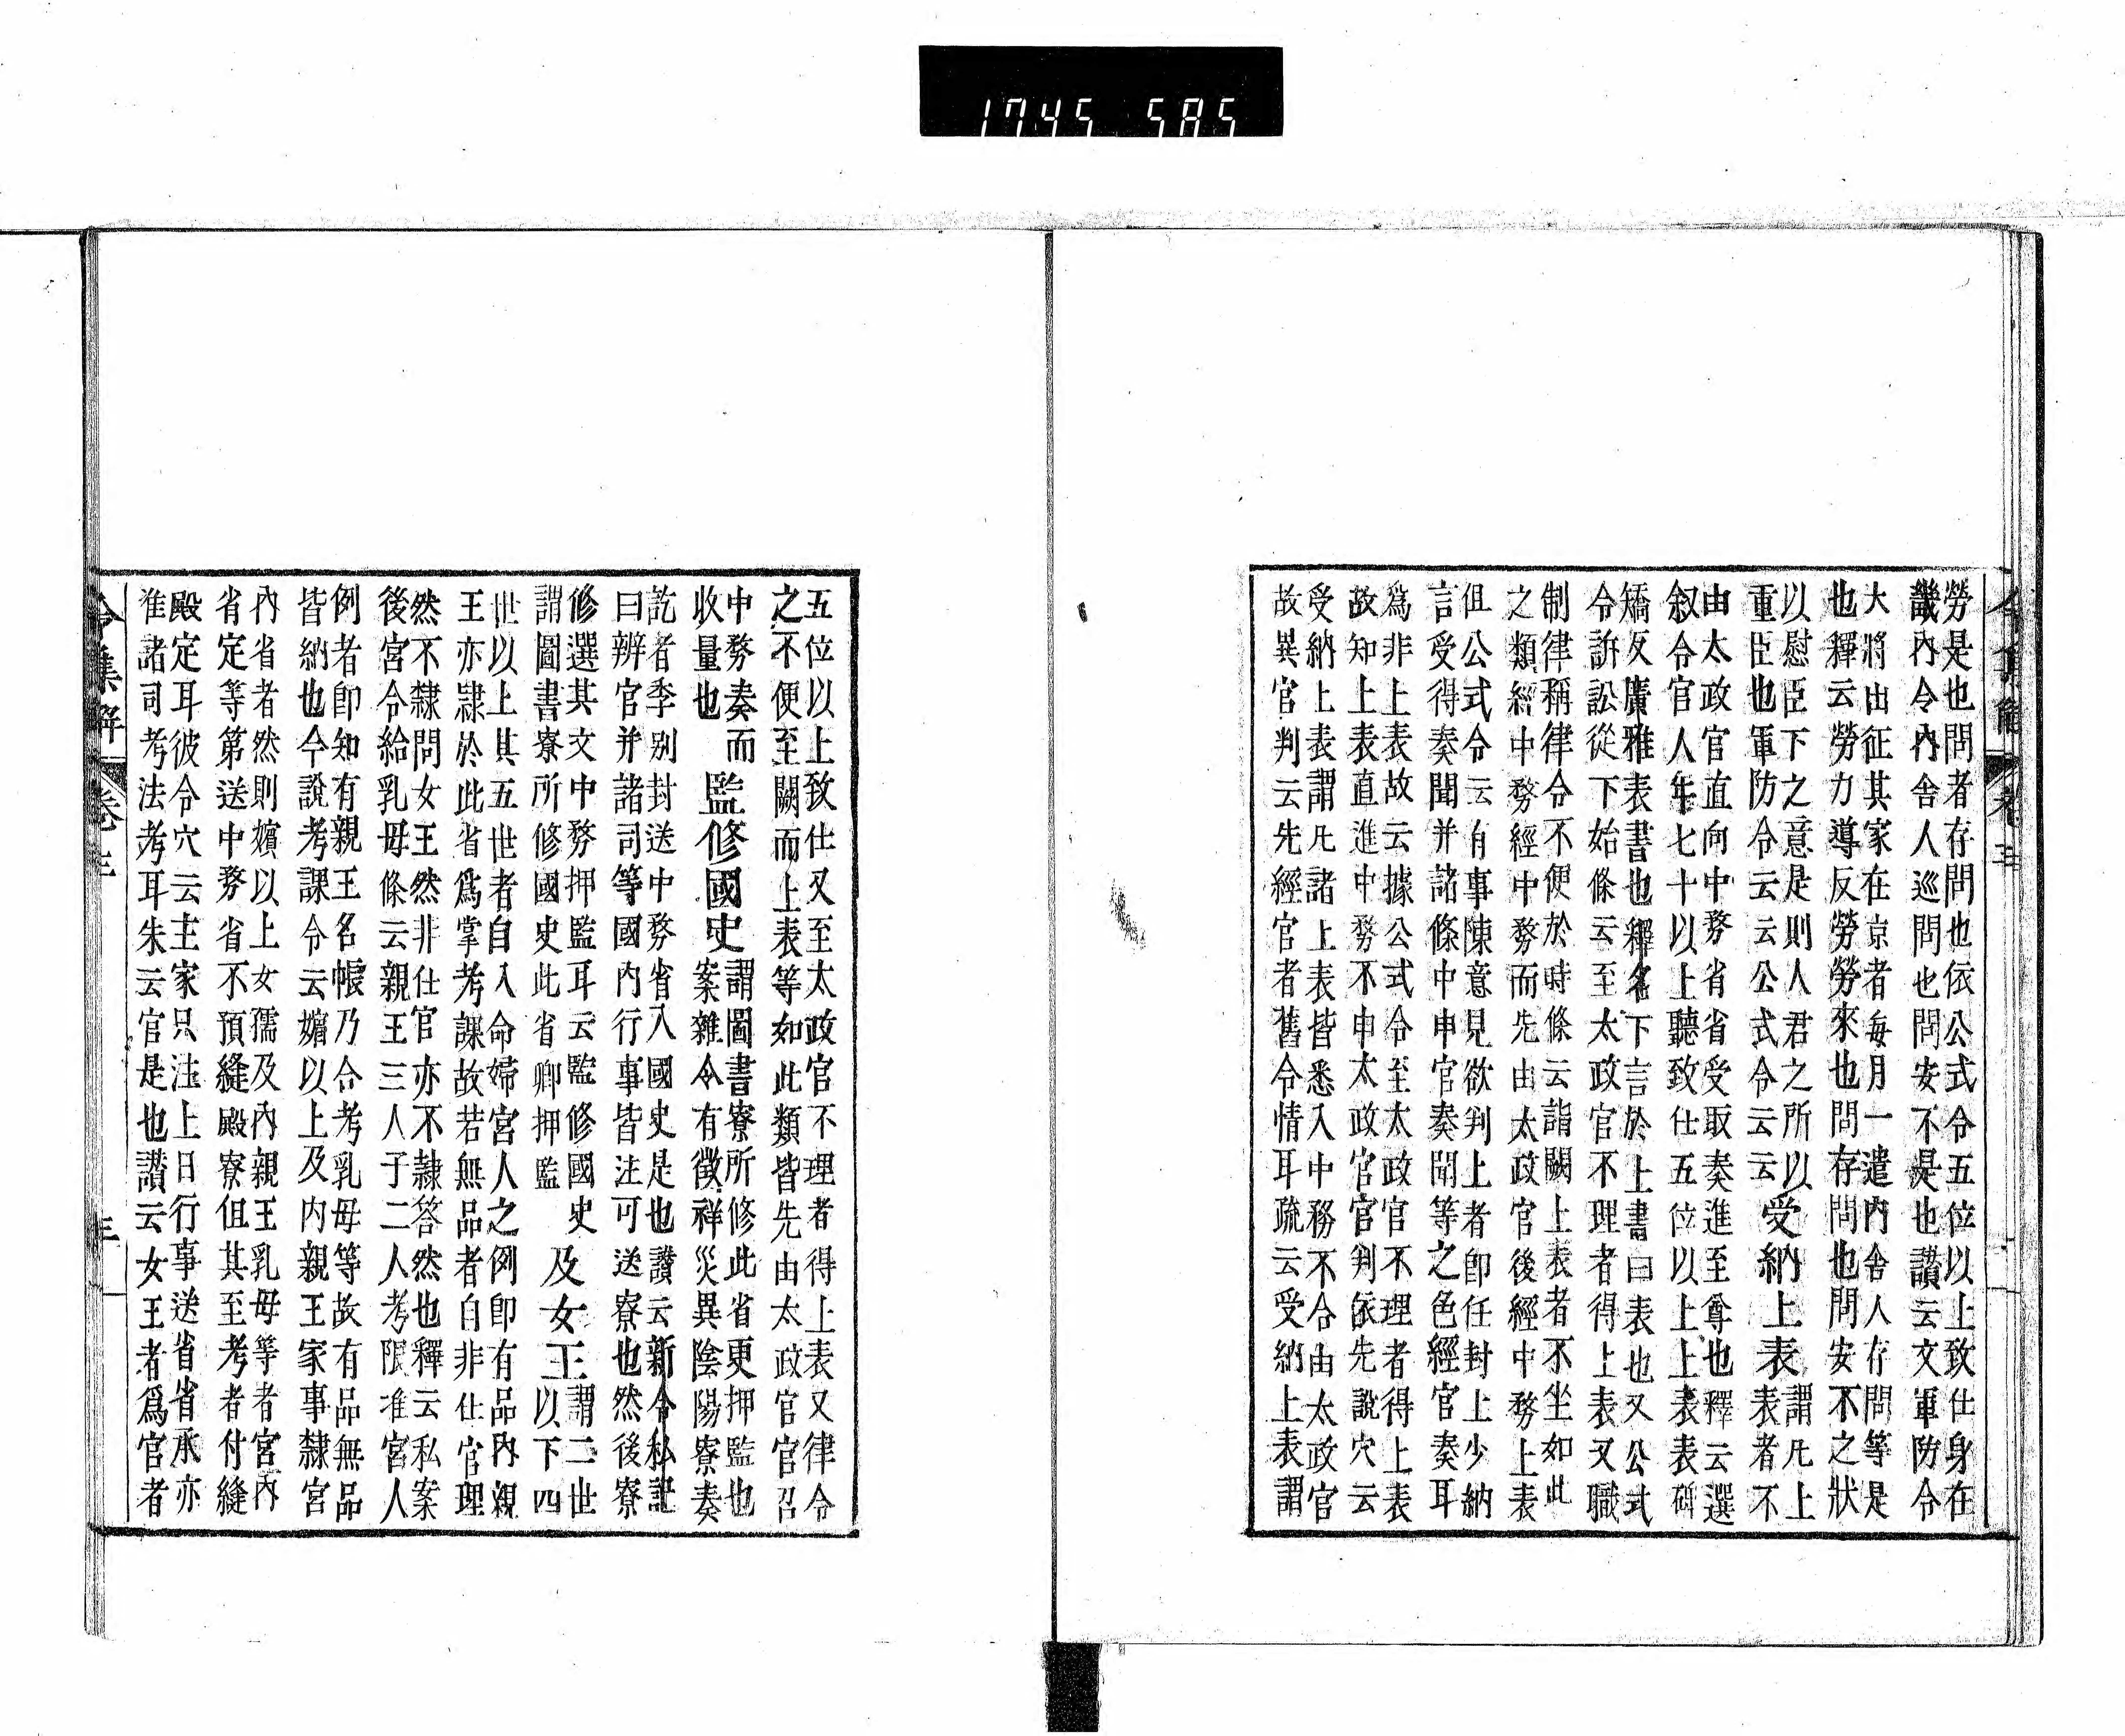 1745 585
令集解 卷三
勞是也問者存問也依公式令五位以上致仕身在
畿內令內舍人巡問也問安不是也讃云文軍防令
大將出征其家在京者每月一遣內舍人存問等是
也釋云勞力導反勞勞來也問存問也問安不之狀
以慰臣下之意是則人君之所以
重臣也軍防令云云公式令云云
受納上表
謂凡上
表者不
由太政官直向中務省省受取奏進至尊也釋云選
叙令官人年七十以上聽致仕五位以上上表表碑
矯反廣雅表書也釋名下言於上書曰表也又公式
令訴訟從下始條云至太政官不理者得上表又職
制律稱律令不便於時條云詣闕上表者不坐如此
之類經中務經中務而先由太政官後經中務上表
但公式令云有事陳意見欲封上者卽任封上少納
言受得奏聞并諸條中申官奏聞等之色經官奏耳
爲非上表故云據公式令至太政官不理者得上表
故知上表直進中務不申太政官官判依先說穴云
受納上表謂凡諸上表皆悉入中務不合由太政官
故異官判云先經官者舊令情耳疏云受納上表謂
五位以上致仕又至太政官不理者得上表又律令
之不便至闕而上表等如此類皆先由太政官官召
中務奏而
收量也
監修國史
謂圖書寮所修此省更押監也
案雜令有徵祥災異陰陽寮奏
訖者季別封送中務省入國史是也讃云新令私記
曰辨官并諸司等國內行事皆注可送寮也然後寮
修選其文中務押監耳云監修國史
謂圖書寮所修國史此省卿押監
及女王
謂二世
以下四
世以上其五世者自入命婦宮人之例卽有品內親
王亦隸於此省爲掌考課故若無品者自非仕官理
然不隸問女王然非仕官亦不隸答然也釋云私案
後宮令給乳母條云親王三人子二人考限准宮人
例者卽知有親王名帳乃合考乳母等故有品無品
皆納也今說考課令云嬪以上及內親王家事隸宮
內省者然則嬪以上女孺及內親王乳母等者宮內
省定等第送中務省不預縫殿寮但其至考者付縫
殿定耳彼令穴云主家只注上日行事送省省承亦
准諸司考法考耳朱云官是也讃云女王者爲官者
令集解 卷三